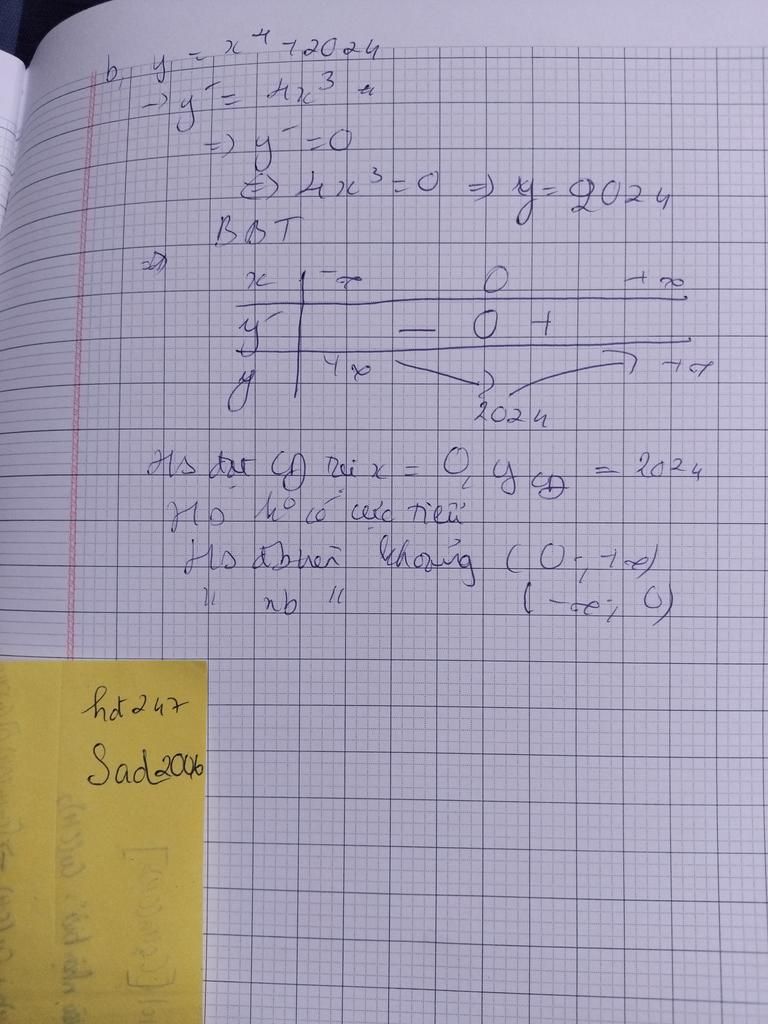 b, y = x⁴ + 2024
→ y' = 4x³
⇒ y' = 0
⇔ 4x³ = 0 ⇒ y = 2024
BBT
⇒
x -∞ 0 +∞
y' - 0 +
y +∞ 2024 +∞
HS đạt CĐ tại x = 0, y CĐ = 2024
HS k° có cực tiểu
HS đbiến khoảng (0; +∞)
" nb " (-∞; 0)
hdt247
Sad2006